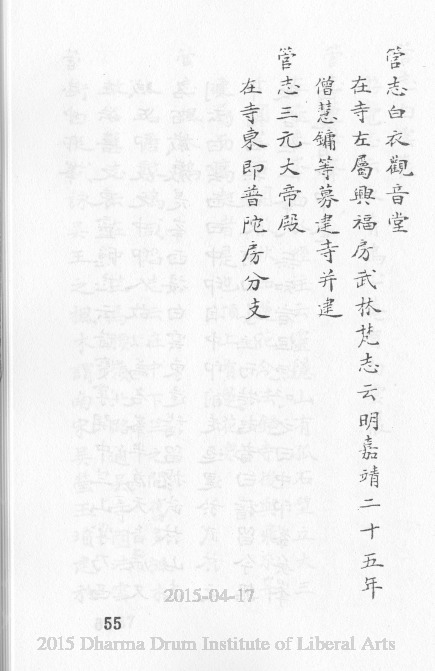 管志白衣觀音堂
在寺左屬興福房武林梵志云明嘉靖二十五年
僧慧鏞等募建寺并建
管志三元大帝殿
在寺東即普陀房分支
2015-04-17
55
2015 Dharma Drum Institute of Liberal Arts